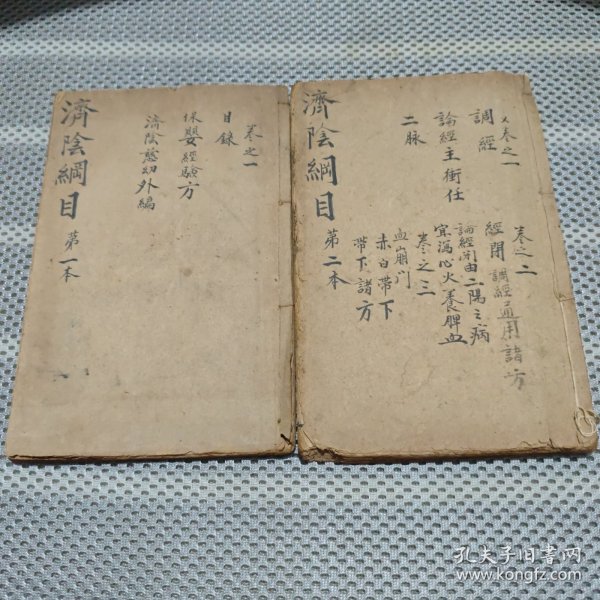 濟陰綱目 第一本
卷之一
目錄
保嬰經驗方
濟陰慈幼外編
濟陰綱目 第二本
又卷之一
調經
論經主衝任
二脉
卷之二
經閉 調經通用諸方
論經閉由二陽之病
宜瀉心火養脾血
卷之三
血崩門
赤白帶下
帶下諸方
孔夫子旧书网
www.kongfz.com